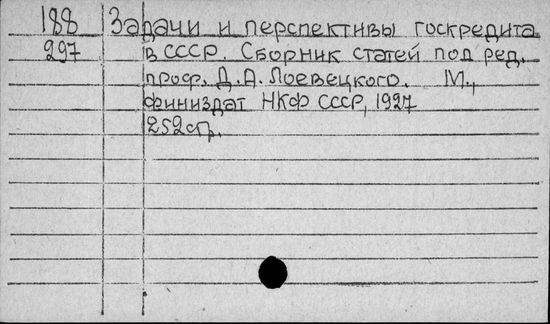 188 Задачи и перспективы госкредита
297 в СССР. Сборник статей под ред.
проф. Д. А. Лоевецкого. М.,
Финиздат НКФ СССР, 1927
252стр.